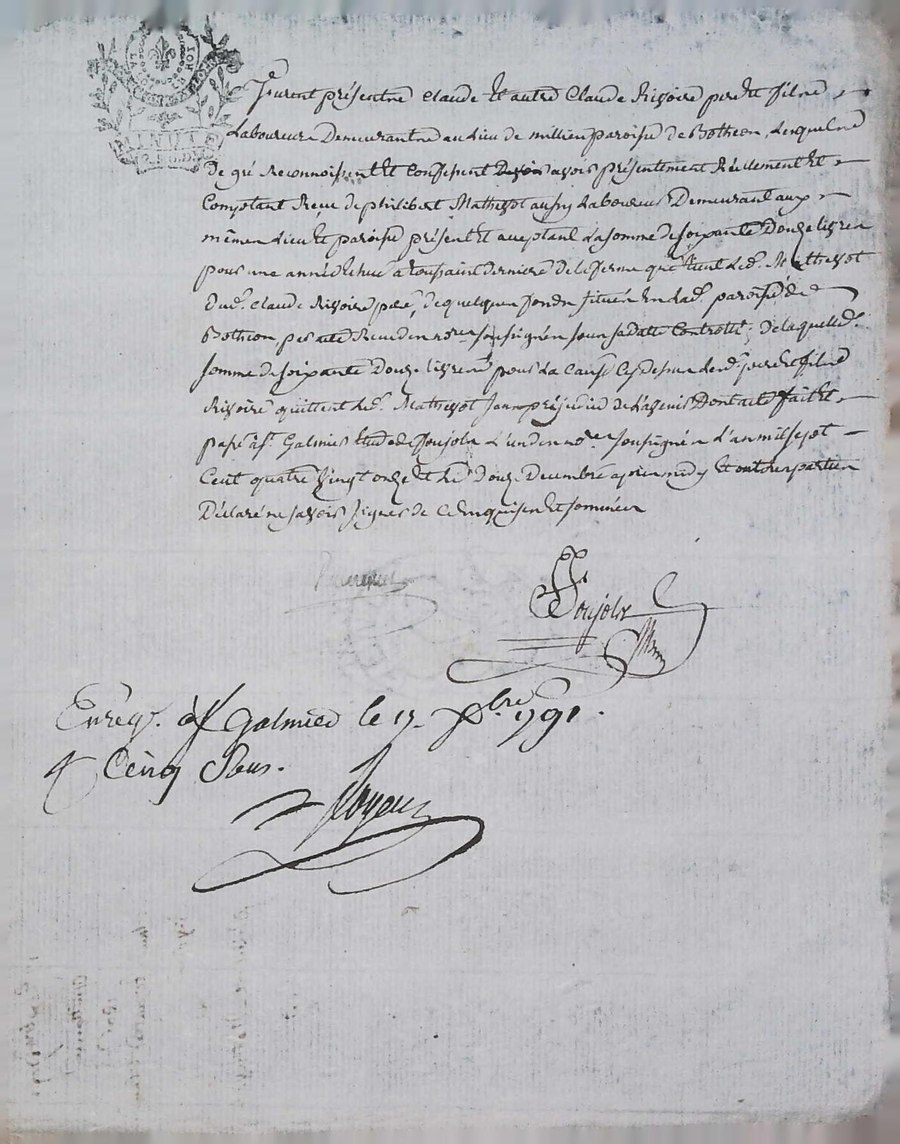 LA LOI ET LE ROI
MINUTE
Furent présents claude Et autre Claude Rigoire pere Et fils
Laboureurs Demeurants au lieu de millieu paroisse de Botheon, Lesquels
De gré Reconnoissent Et Confessent avoir présentement Réellement Et
Comptant Reçu de philibert Mathevot aussy Laboureur Demeurant aux
mêmes Lieu Et paroisse présent Et acceptant La somme de soixante Douze livres
pour une année Echue à toussaint derniere de la ferme que tient Led. Mathevot
Dud. claude Rigoire pere, de quelques fonds situés En lad. paroisse de
Botheon par acte Recu des nores soussignés sous sa date Controllé; de laquelle
somme de soixante Douze livres pour La Cause Cy dessus Lesd. pere Et fils
Rigoire quittent Led. Mathevot sans préjudice de L'avenir Dont acte fait Et
passé à st. Galmier Etude de Poujols L'un des nores soussignés L'an mil sept
Cent quatre Vingt onze Et Le Douze Decembre après midy Et ont les parties
Déclaré ne savoir signer de Ce Enquises Et sommées
Poujols
Enreg. à st Galmier le 17 Xbre 1791.
Cinq Sous.